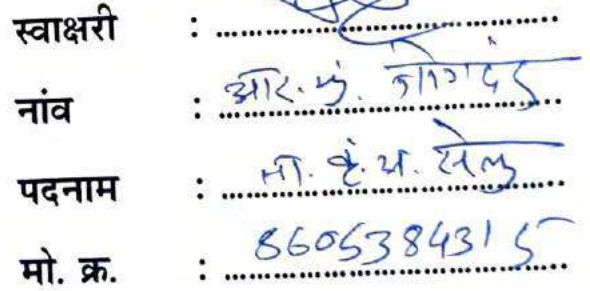 स्वाक्षरी :
नांव : आर. के. जोगदंड
पदनाम : सेलु
मो. क्र. : 8605384315